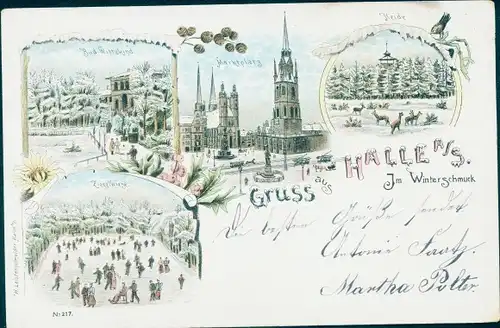 Bad Wittekind
Marktplatz
Heide
Ziegelwiese
Gruss aus HALLE A/S.
Im Winterschmuck
Die besten Grüße sendet
Antonie
Martha Polter.
No. 217.